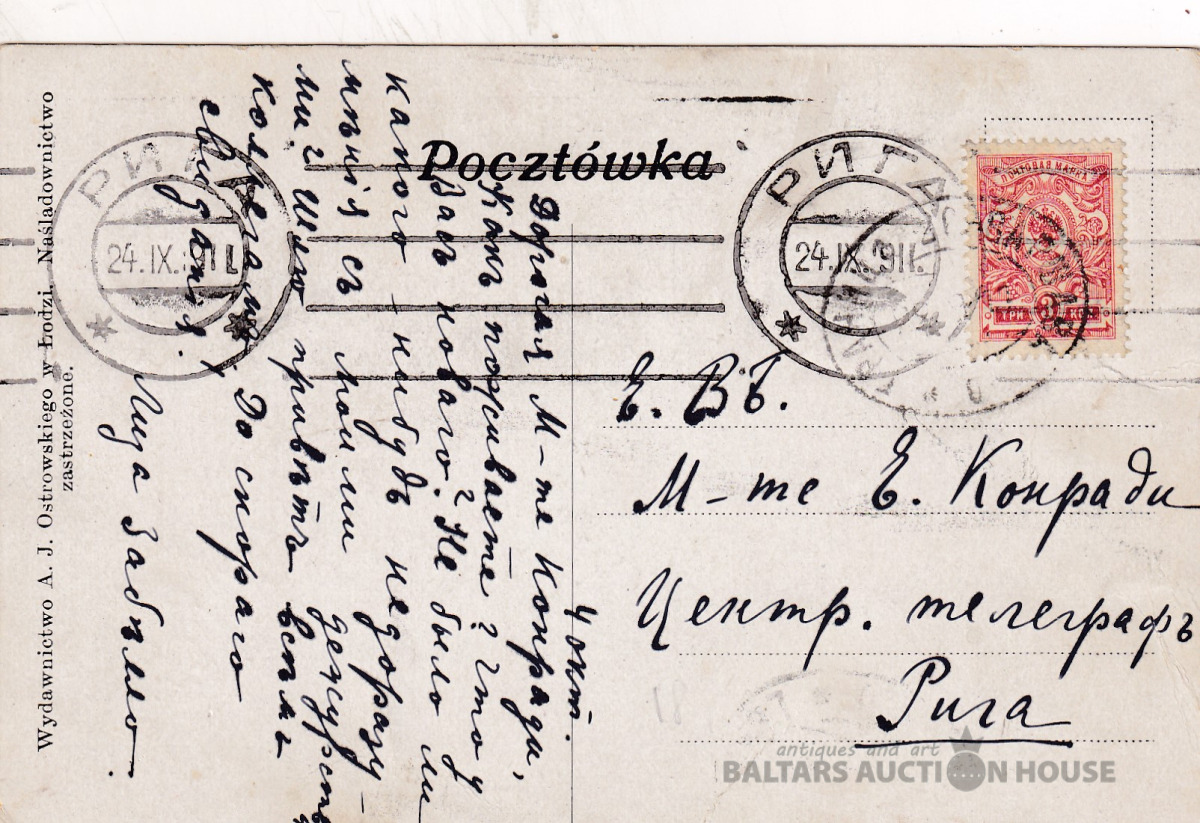 Pocztówka
Wydawnictwo A. J. Ostrowskiego w Łodzi. Naśladownictwo
zastrzeżone.
РИГА
24.IX.911.
РИГА
24.IX.911.
ПОЧТОВАЯ МАРКА
3
ТРИ КОП
4 окт.
Дорогая М-те Конради,
Какъ поживаете? что у
Васъ новаго? Не было ли
какого нибудь недоразу-
мѣнія съ моими дежурств
ми? Шлю привѣтъ всѣмъ
коллегамъ. До скораго
свиданія.
Лида Забѣлло.
Е. ВБ.
М-те Е. Конради
Центр. телеграфъ
Рига
antiques and art
BALTARS AUCTION HOUSE